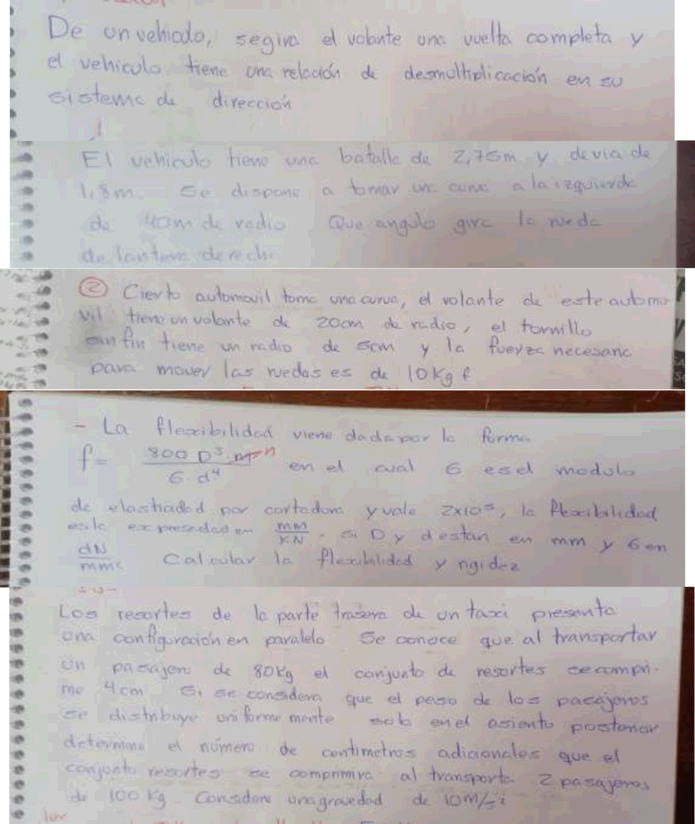 De un vehiculo, se gira el volante una vuelta completa y
el vehiculo tiene una relación de desmultiplicación en su
sistema de dirección
El vehiculo tiene una batalla de 2,75m y de via de
1,8m. Se dispone a tomar una curva a la izquierda
de 40m de radio Que angulo gira la rueda
delantera derecha
② Cierto automovil toma una curva, el volante de este automo
vil tiene un volante de 20cm de radio, el tornillo
sin fin tiene un radio de 5cm y la fuerza necesaria
para mover las ruedas es de 10 Kg f
- La flexibilidad viene dada por la forma
f= 800 D³ n / G d⁴ en el cual G es el modulo
de elasticidad por cortadura y vale 2x10⁵, la flexibilidad
esta expresada en mm/KN. Si D y d estan en mm y G en
dN/mm² Calcular la flexibilidad y rigidez
Los resortes de la parte trasera de un taxi presenta
una configuración en paralelo Se conoce que al transportar
un pasajero de 80kg el conjunto de resortes se compri-
me 4cm Si se considera que el peso de los pasajeros
se distribuye uniformemente solo en el asiento posterior
determine el número de centimetros adicionales que el
conjunto resortes se comprimira al transporta 2 pasajeros
de 100 kg Considere una gravedad de 10m/s²